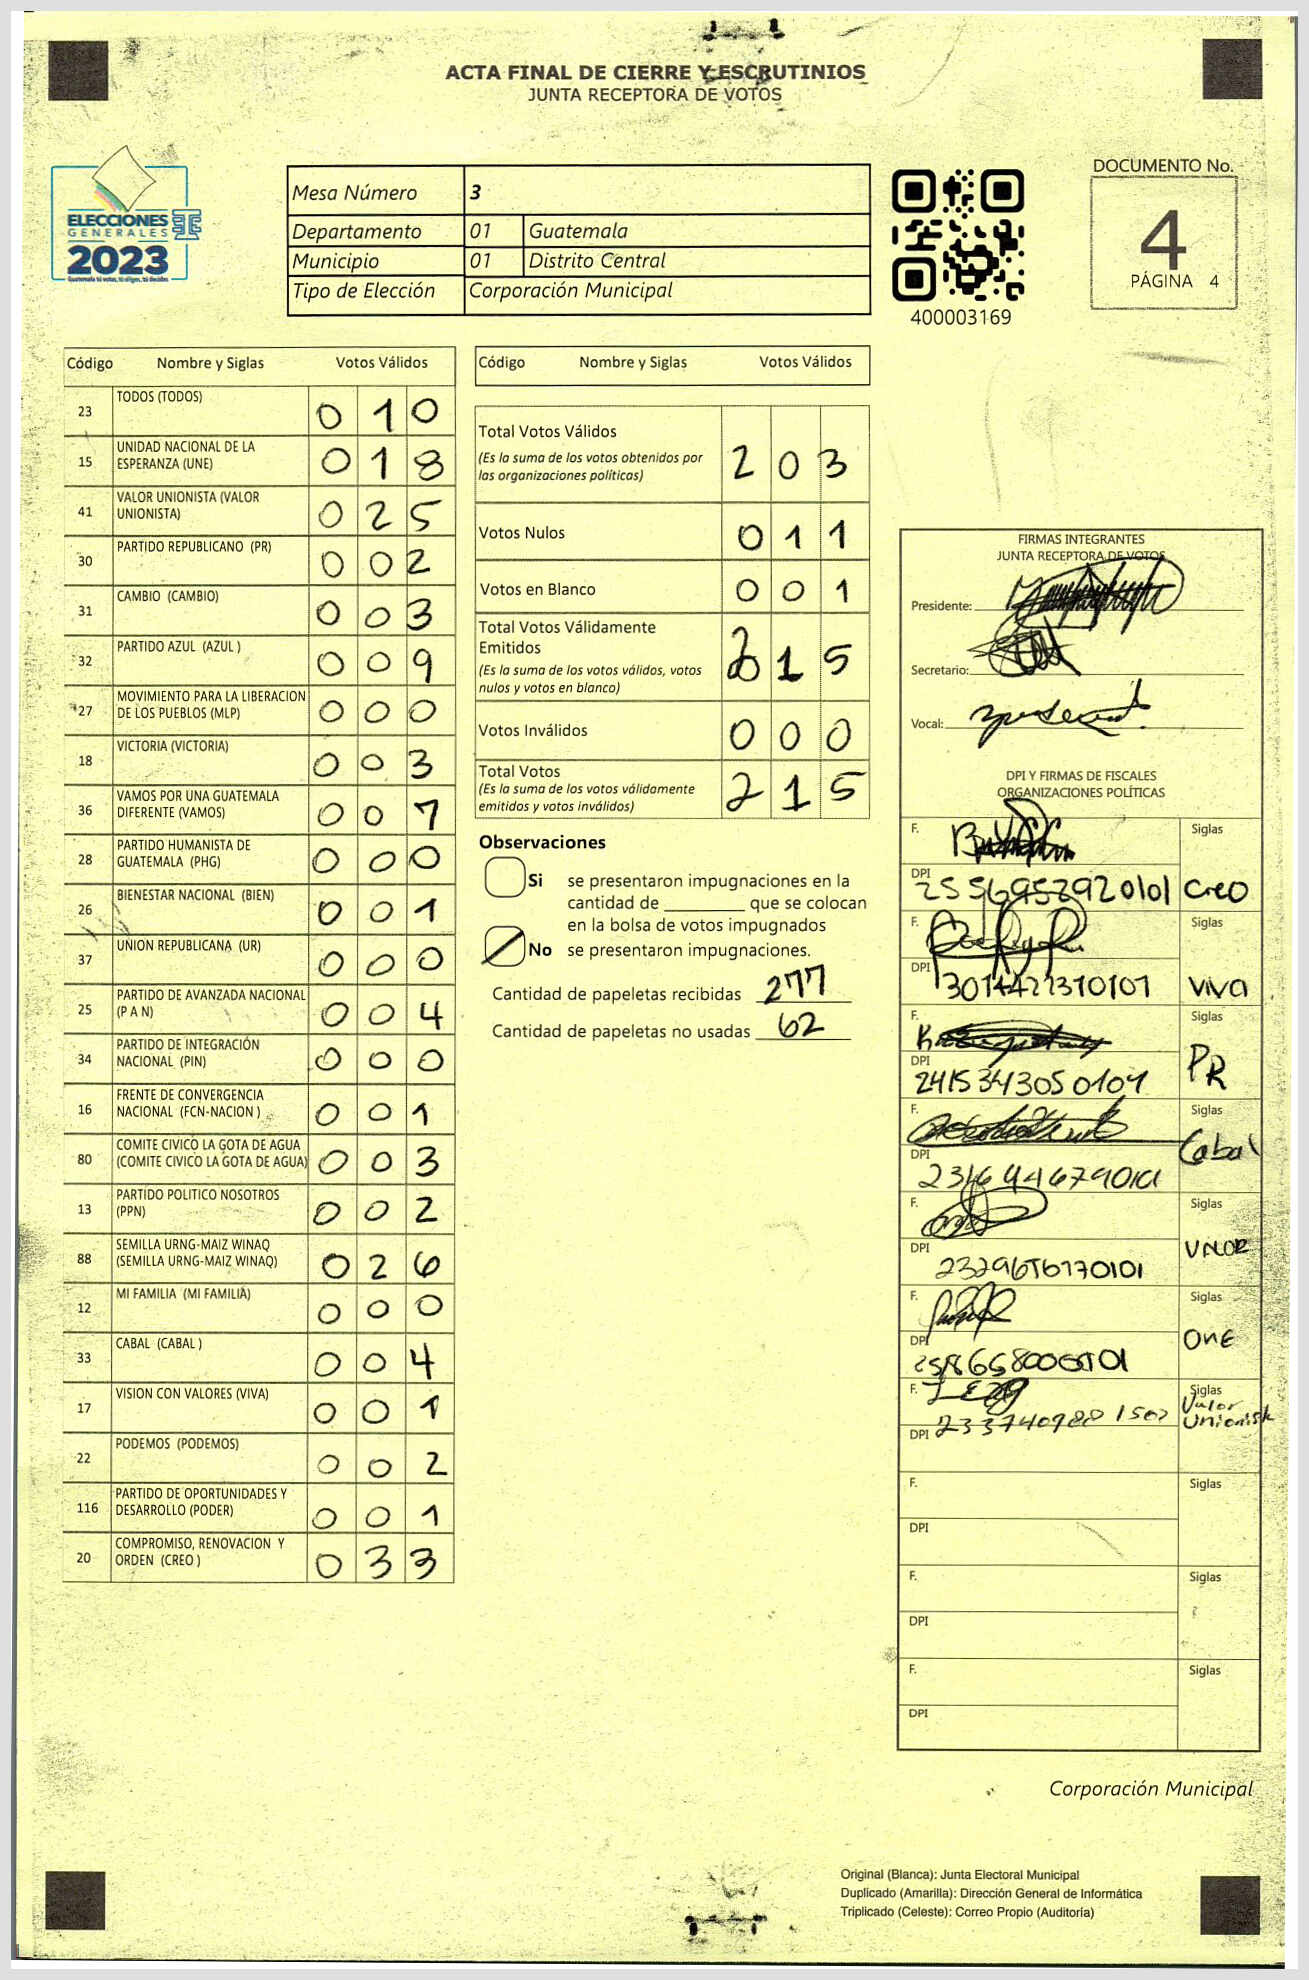 ACTA FINAL DE CIERRE Y ESCRUTINIOS
JUNTA RECEPTORA DE VOTOS
ELECCIONES
GENERALES
2023
Guatemala tú votas, tú eliges, tú decides
Mesa Número 3
Departamento 01 Guatemala
Municipio 01 Distrito Central
Tipo de Elección Corporación Municipal
400003169
DOCUMENTO No.
4
PÁGINA 4
Código Nombre y Siglas Votos Válidos
23 TODOS (TODOS) 0 1 0
15 UNIDAD NACIONAL DE LA
ESPERANZA (UNE) 0 1 8
41 VALOR UNIONISTA (VALOR
UNIONISTA) 0 2 5
30 PARTIDO REPUBLICANO (PR) 0 0 2
31 CAMBIO (CAMBIO) 0 0 3
32 PARTIDO AZUL (AZUL ) 0 0 9
27 MOVIMIENTO PARA LA LIBERACION
DE LOS PUEBLOS (MLP) 0 0 0
18 VICTORIA (VICTORIA) 0 0 3
36 VAMOS POR UNA GUATEMALA
DIFERENTE (VAMOS) 0 0 7
28 PARTIDO HUMANISTA DE
GUATEMALA (PHG) 0 0 0
26 BIENESTAR NACIONAL (BIEN) 0 0 1
37 UNION REPUBLICANA (UR) 0 0 0
25 PARTIDO DE AVANZADA NACIONAL
(P A N) 0 0 4
34 PARTIDO DE INTEGRACIÓN
NACIONAL (PIN) 0 0 0
16 FRENTE DE CONVERGENCIA
NACIONAL (FCN-NACION ) 0 0 1
80 COMITE CIVICO LA GOTA DE AGUA
(COMITE CIVICO LA GOTA DE AGUA) 0 0 3
13 PARTIDO POLITICO NOSOTROS
(PPN) 0 0 2
88 SEMILLA URNG-MAIZ WINAQ
(SEMILLA URNG-MAIZ WINAQ) 0 2 6
12 MI FAMILIA (MI FAMILIA) 0 0 0
33 CABAL (CABAL ) 0 0 4
17 VISION CON VALORES (VIVA) 0 0 1
22 PODEMOS (PODEMOS) 0 0 2
116 PARTIDO DE OPORTUNIDADES Y
DESARROLLO (PODER) 0 0 1
20 COMPROMISO, RENOVACION Y
ORDEN (CREO ) 0 3 3
Código Nombre y Siglas Votos Válidos
Total Votos Válidos
(Es la suma de los votos obtenidos por
las organizaciones políticas) 2 0 3
Votos Nulos 0 1 1
Votos en Blanco 0 0 1
Total Votos Válidamente
Emitidos
(Es la suma de los votos válidos, votos
nulos y votos en blanco) 2 1 5
Votos Inválidos 0 0 0
Total Votos
(Es la suma de los votos válidamente
emitidos y votos inválidos) 2 1 5
Observaciones
Si se presentaron impugnaciones en la
cantidad de ________ que se colocan
en la bolsa de votos impugnados
No se presentaron impugnaciones.
Cantidad de papeletas recibidas 277
Cantidad de papeletas no usadas 62
FIRMAS INTEGRANTES
JUNTA RECEPTORA DE VOTOS
Presidente:
Secretario:
Vocal:
DPI Y FIRMAS DE FISCALES
ORGANIZACIONES POLÍTICAS
F. Siglas
DPI 2556952920101 Creo
F. Siglas
DPI VIVA
F. Siglas
DPI 2415343050101 PR
F. Siglas
DPI Cabal
F. Siglas
DPI VALOR
F. Siglas
DPI ONE
F. Siglas
DPI 2337409881502 Valor
Unionist
F. Siglas
DPI
F. Siglas
DPI
F. Siglas
DPI
Corporación Municipal
Original (Blanca): Junta Electoral Municipal
Duplicado (Amarilla): Dirección General de Informática
Triplicado (Celeste): Correo Propio (Auditoría)